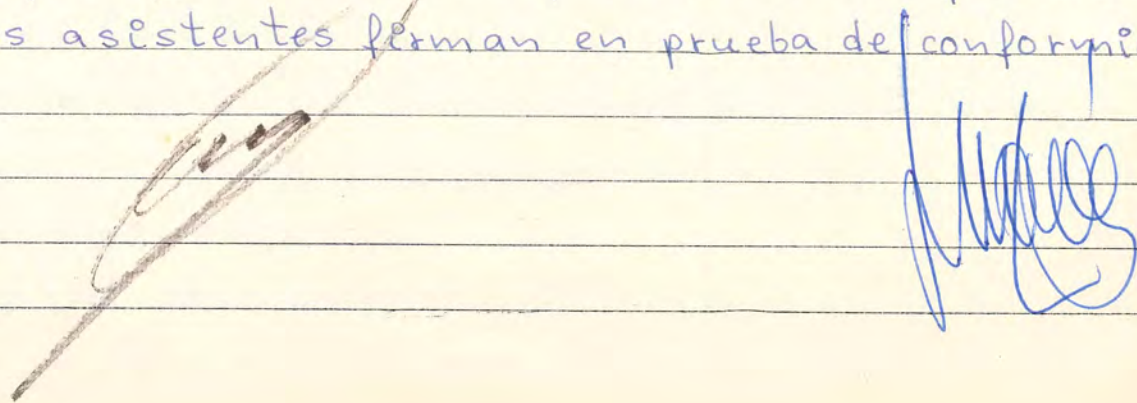 s asistentes firman en prueba de conformi